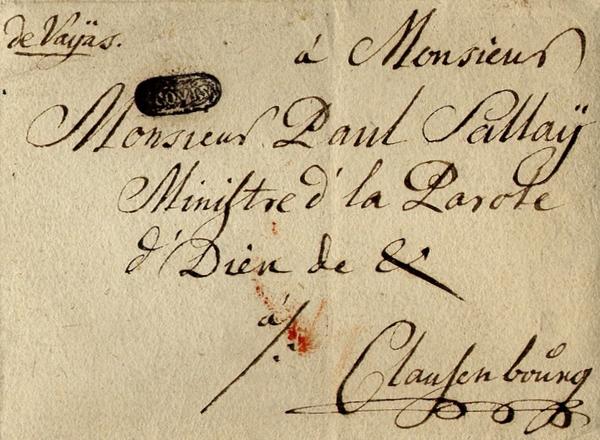 de Vajas.
á Monsieur
Monsieur Paul Sallaÿ
Ministre d' la Parole
d' Dieu de &
á
Clausenbourg